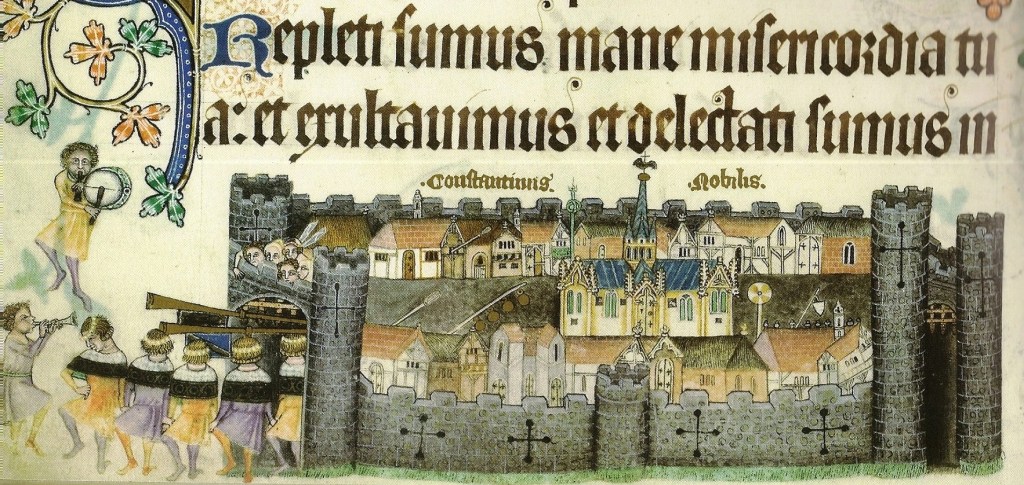 Repleti sumus mane misericordia tu
a: et exultauimus et delectati sumus in
.Constantinus. .Nobilis.